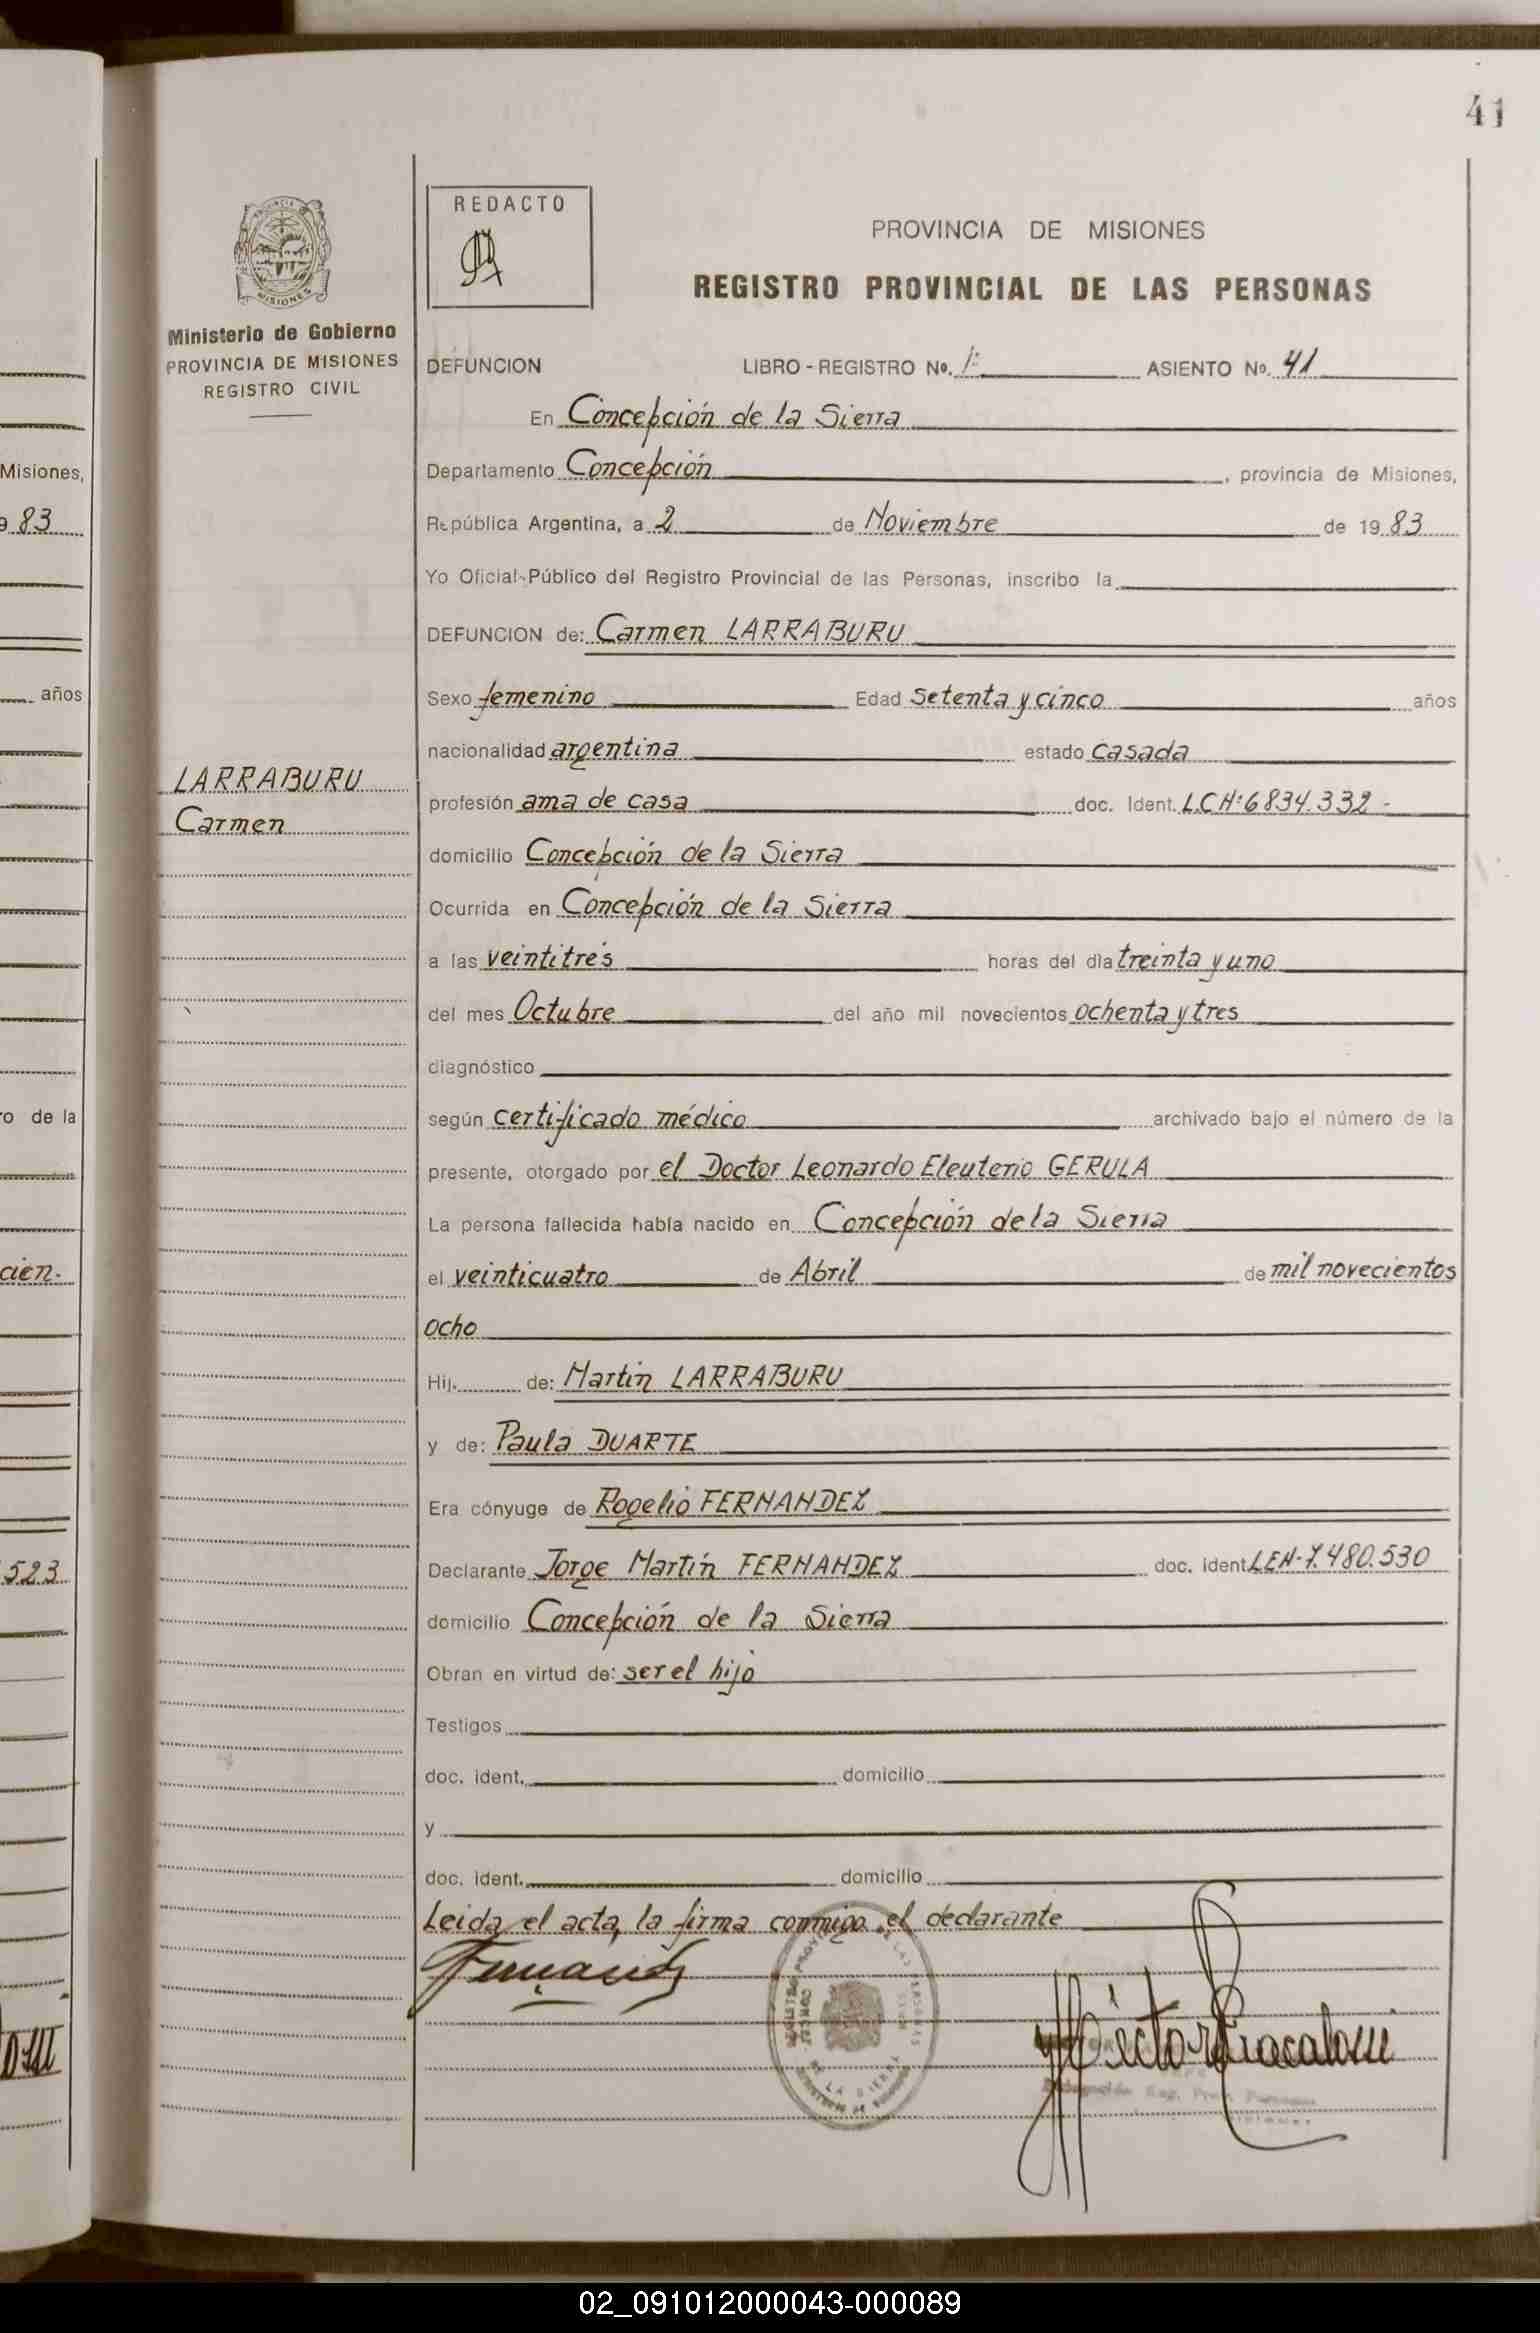 41
REDACTO
PROVINCIA DE MISIONES
REGISTRO PROVINCIAL DE LAS PERSONAS
MISIONES
Ministerio de Gobierno
PROVINCIA DE MISIONES
REGISTRO CIVIL
DEFUNCION LIBRO - REGISTRO No. 1º ASIENTO No. 41
En Concepción de la Sierra
Departamento Concepción, provincia de Misiones,
República Argentina, a 2 de Noviembre de 1983
Yo Oficial Público del Registro Provincial de las Personas, inscribo la
DEFUNCION de: Carmen LARRABURU
Sexo femenino Edad setenta y cinco años
nacionalidad argentina estado casada
LARRABURU
Carmen
profesión ama de casa doc. Ident. L.C.Nº 6834.332-
domicilio Concepción de la Sierra
Ocurrida en Concepción de la Sierra
a las veintitrés horas del día treinta y uno
del mes Octubre del año mil novecientos ochenta y tres
diagnóstico
según certificado médico archivado bajo el número de la
presente, otorgado por el Doctor Leonardo Eleuterio GERULA
La persona fallecida había nacido en Concepción de la Sierra
el veinticuatro de Abril de mil novecientos
ocho
Hij. de: Martin LARRABURU
y de: Paula DUARTE
Era cónyuge de Rogelio FERNANDEZ
Declarante Jorge Martín FERNANDEZ doc. ident. LEN-7.480.530
domicilio Concepción de la Sierra
Obran en virtud de: ser el hijo
Testigos
doc. ident. domicilio
y
doc. ident. domicilio
Leida el acta, la firma conmigo el declarante
Fernandez
Misiones,
9 83
años
o de la
cien.
523
02_091012000043-000089